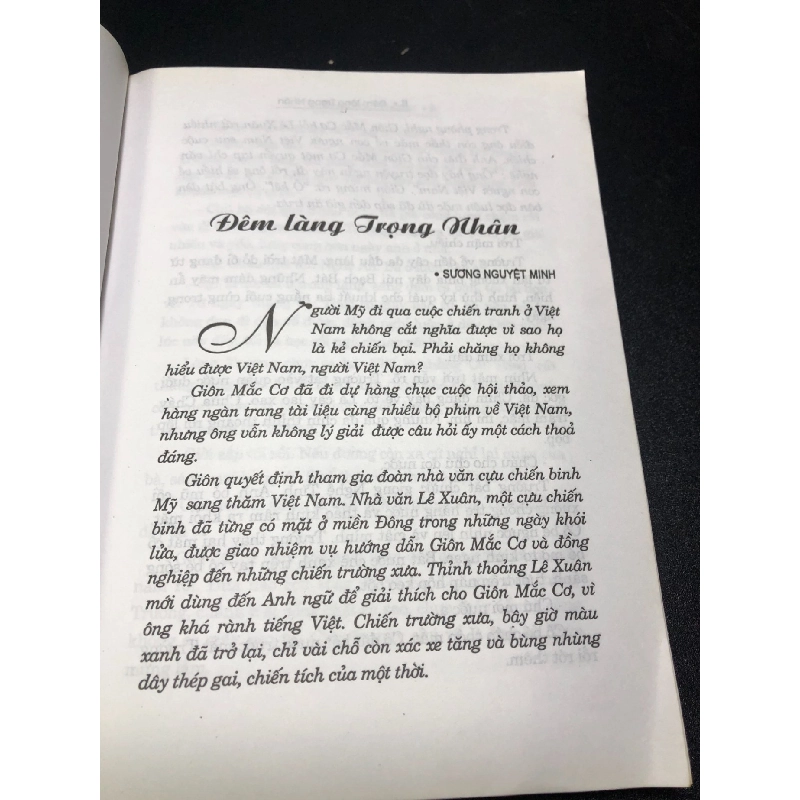 Đêm làng Trọng Nhân
• SƯƠNG NGUYỆT MINH
Người Mỹ đi qua cuộc chiến tranh ở Việt
Nam không cắt nghĩa được vì sao họ
là kẻ chiến bại. Phải chăng họ không
hiểu được Việt Nam, người Việt Nam?
Giôn Mắc Cơ đã đi dự hàng chục cuộc hội thảo, xem
hàng ngàn trang tài liệu cùng nhiều bộ phim về Việt Nam,
nhưng ông vẫn không lý giải được câu hỏi ấy một cách thoả
đáng.
Giôn quyết định tham gia đoàn nhà văn cựu chiến binh
Mỹ sang thăm Việt Nam. Nhà văn Lê Xuân, một cựu chiến
binh đã từng có mặt ở miền Đông trong những ngày khói
lửa, được giao nhiệm vụ hướng dẫn Giôn Mắc Cơ và đồng
nghiệp đến những chiến trường xưa. Thỉnh thoảng Lê Xuân
mới dùng đến Anh ngữ để giải thích cho Giôn Mắc Cơ, vì
ông khá rành tiếng Việt. Chiến trường xưa, bây giờ màu
xanh đã trở lại, chỉ vài chỗ còn xác xe tăng và bùng nhùng
dây thép gai, chiến tích của một thời.